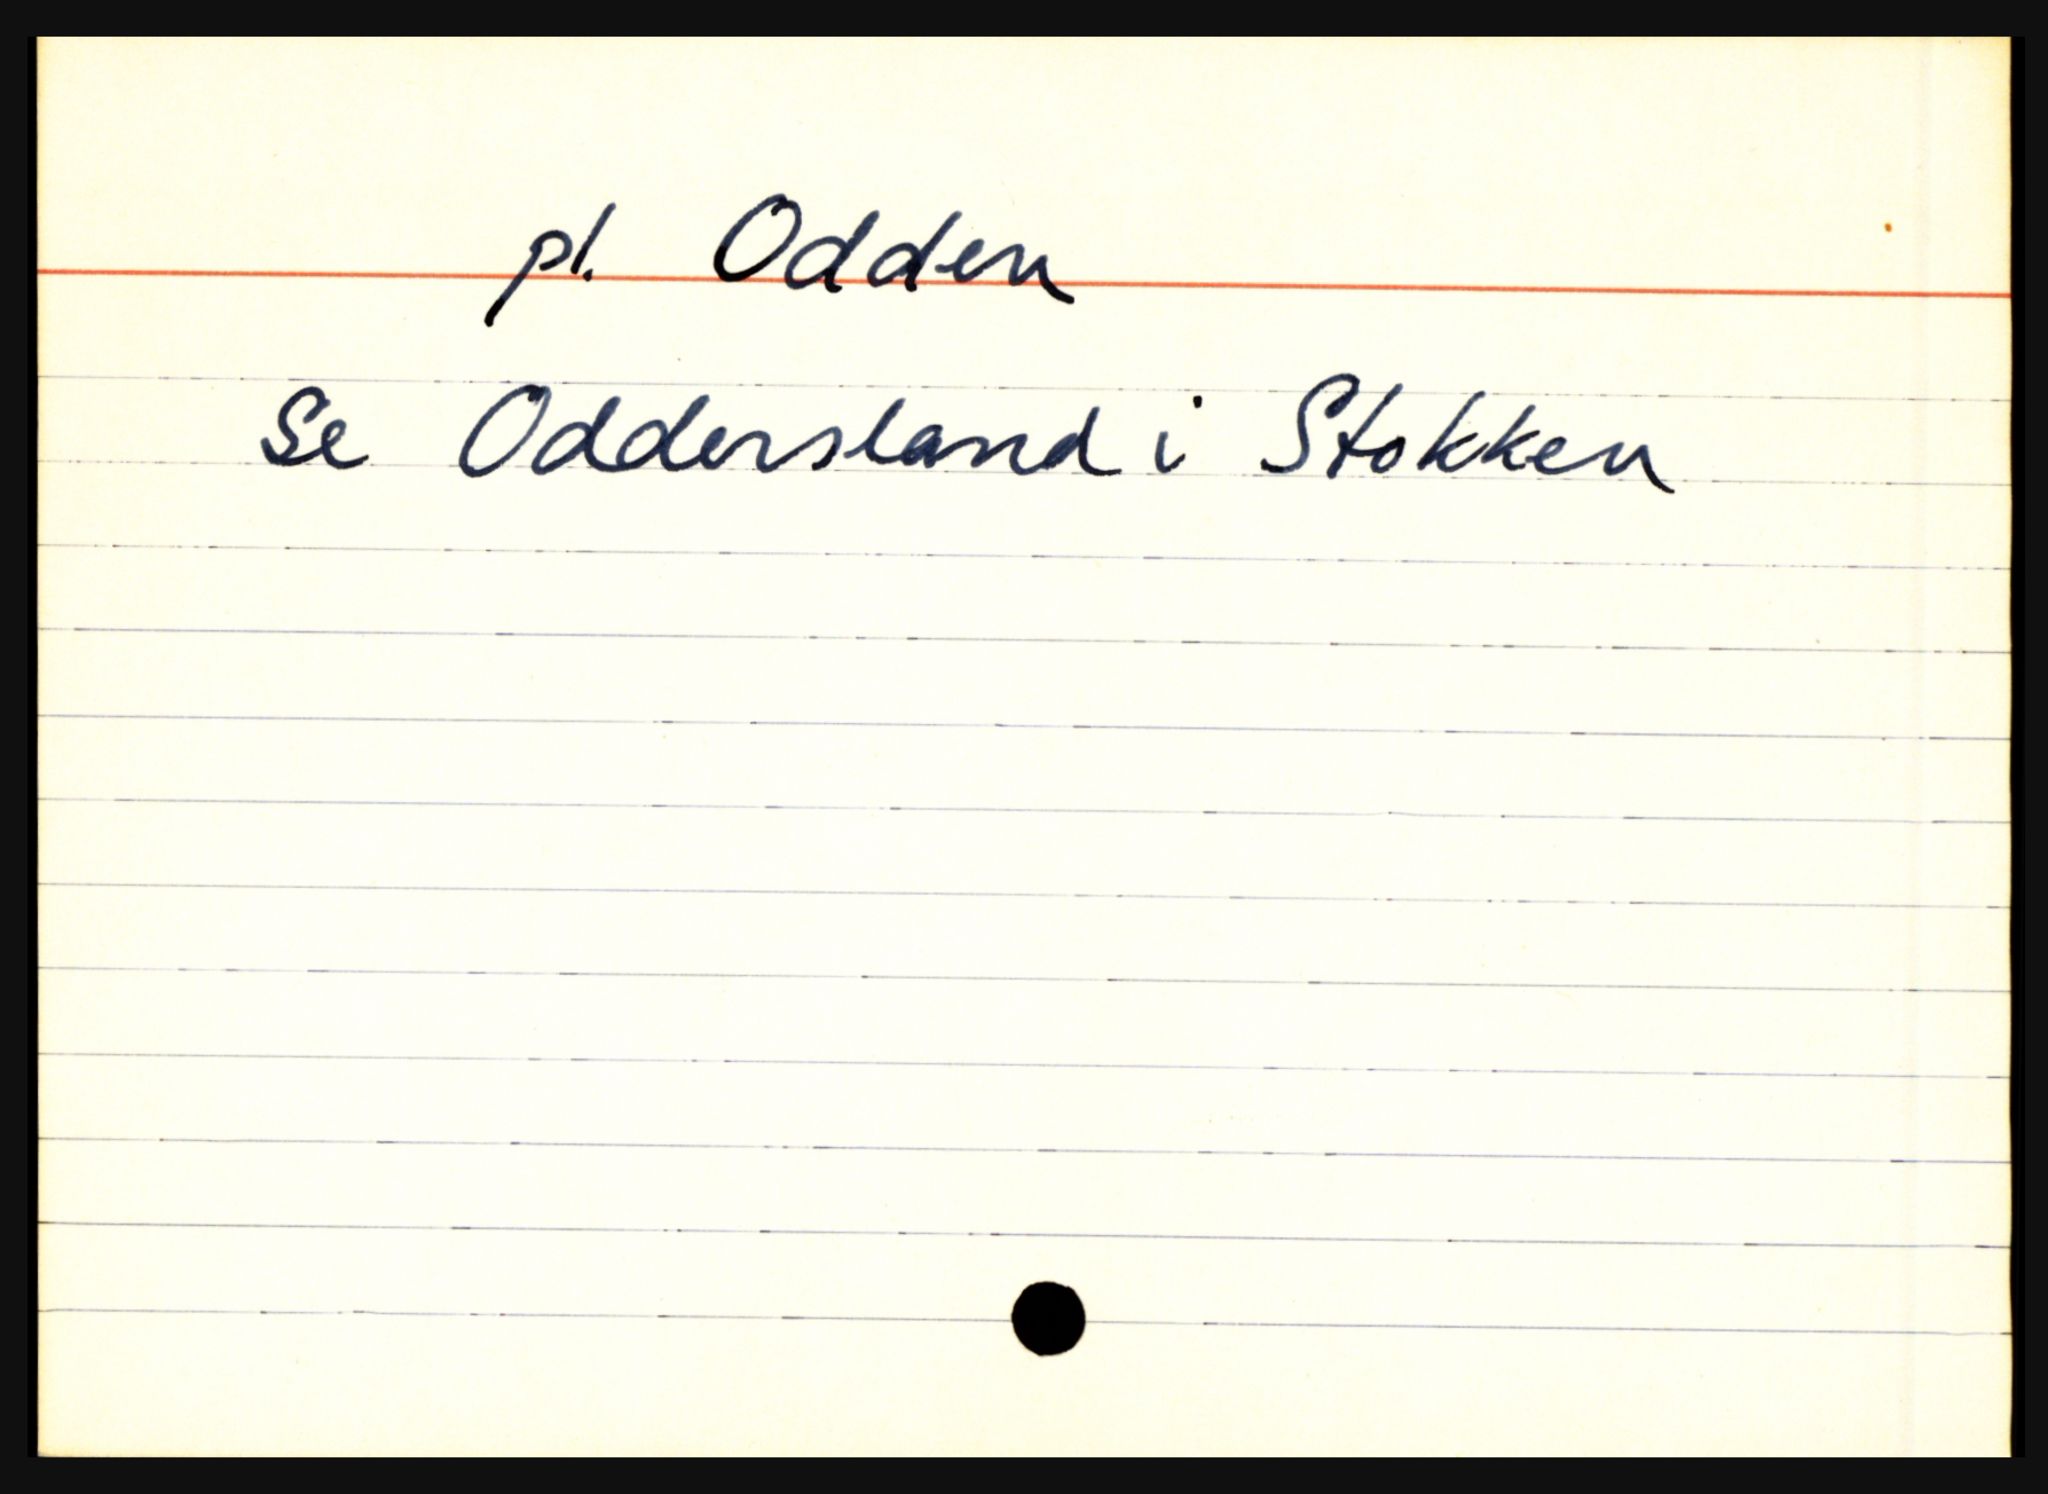 pl. Odden
Se Oddersland i Stokken